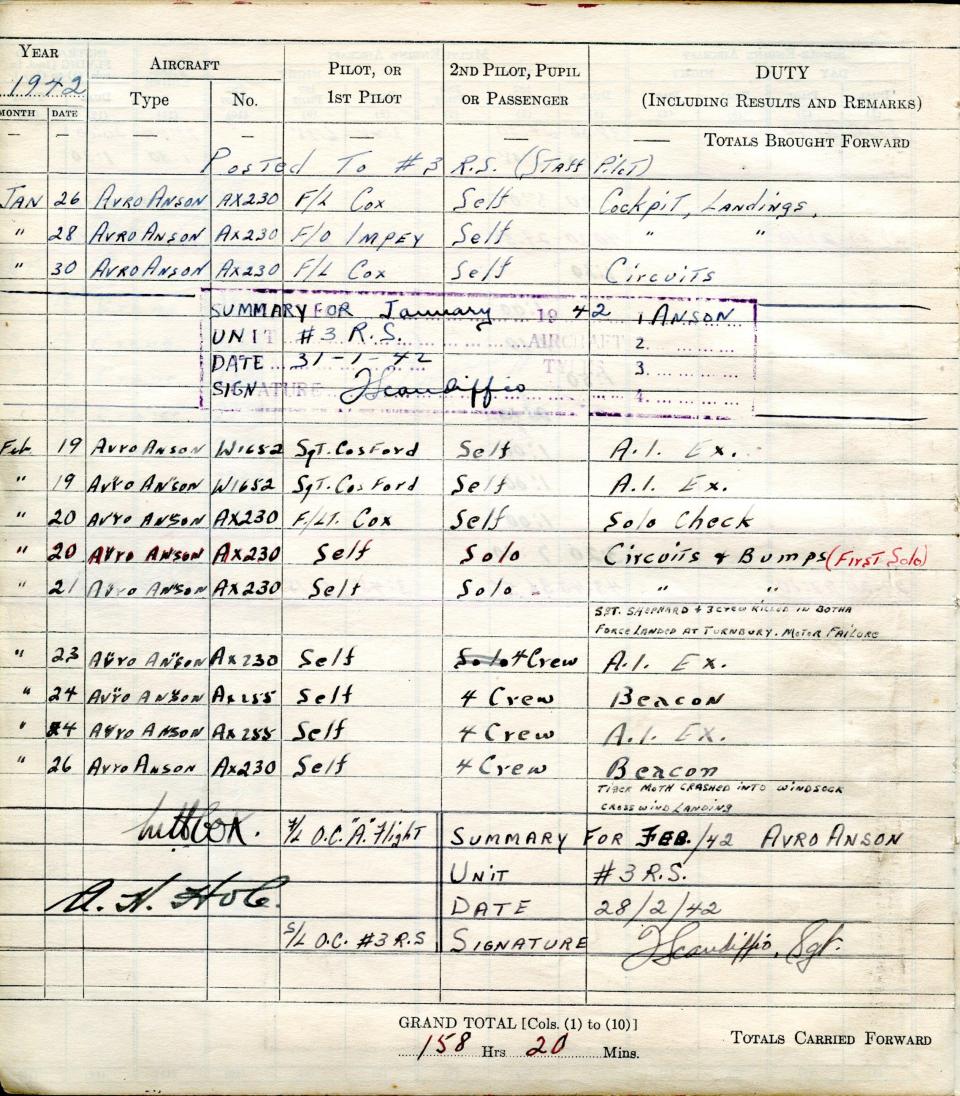 YEAR AIRCRAFT PILOT, OR 2ND PILOT, PUPIL DUTY
1942 Type No. 1ST PILOT OR PASSENGER (INCLUDING RESULTS AND REMARKS)
MONTH DATE
— — — — — — — TOTALS BROUGHT FORWARD
POSTED TO #3 R.S. (STAFF PILOT)
JAN 26 AVRO ANSON AX230 F/L Cox Self Cockpit, Landings,
" 28 AVRO ANSON AX230 F/O IMPEY Self " "
" 30 AVRO ANSON AX230 F/L Cox Self Circuits
SUMMARY FOR January 1942 1 ANSON
UNIT #3 R.S. AIRCRAFT 2.
DATE 31-1-42 TYPE 3.
SIGNATURE JScandiffio 4.
Feb. 19 AVRO ANSON W1652 Sgt. CosFord Self A.I. Ex.
" 19 AVRO ANSON W1652 Sgt. CosFord Self A.I. Ex.
" 20 AVRO ANSON AX230 F/LT. Cox Self Solo Check
" 20 AVRO ANSON AX230 Self Solo Circuits & Bumps (First Solo)
" 21 AVRO ANSON AX230 Self Solo " "
SGT. SHEPHARD + 3 CREW KILLED IN BOTHA
FORCE LANDED AT TURNBURY. MOTOR FAILURE
" 23 AVRO ANSON AX230 Self Solo 4 Crew A.I. Ex.
" 24 AVRO ANSON Self 4 Crew Beacon
" 24 AVRO ANSON Self 4 Crew A.I. Ex.
" 26 AVRO ANSON AX230 Self 4 Crew Beacon
TIGER MOTH CRASHED INTO WINDSOCK
CROSS WIND LANDING
Cox. F/L O.C. "A" Flight SUMMARY FOR FEB./42 AVRO ANSON
UNIT #3 R.S.
A. H. DATE 28/2/42
S/L O.C. #3 R.S SIGNATURE JScandiffio, Sgt.
GRAND TOTAL [Cols. (1) to (10)]
158 Hrs 20 Mins. TOTALS CARRIED FORWARD